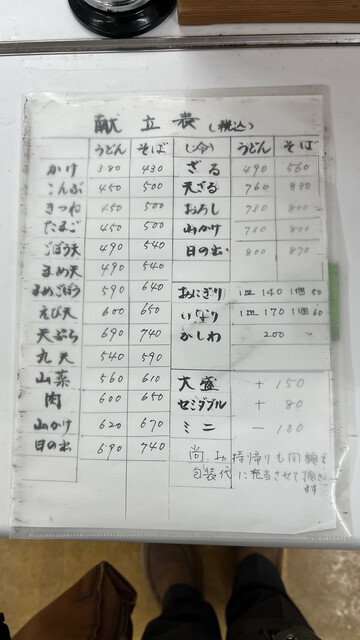 献立表(税込)
うどん そば
かけ 380 430
こんぶ 450 500
きつね 450 500
たまご 450 500
ごぼう天 490 540
まめ天 490 540
まめごぼう 590 640
えび天 600 650
天ぷら 690 740
丸天 540 590
山菜 560 610
肉 600 650
山かけ 620 670
日の出 690 740
(冷) うどん そば
ざる 490 560
天ざる 760 830
おろし 730 800
山かけ 800
日の出 800 870
おにぎり 1皿 140 1個 50
いなり 1皿 170 1個 60
かしわ 200
大盛 + 150
セミダブル + 80
ミニ - 100
尚、お持帰りも同額を
包装代に充当させて頂き
ます